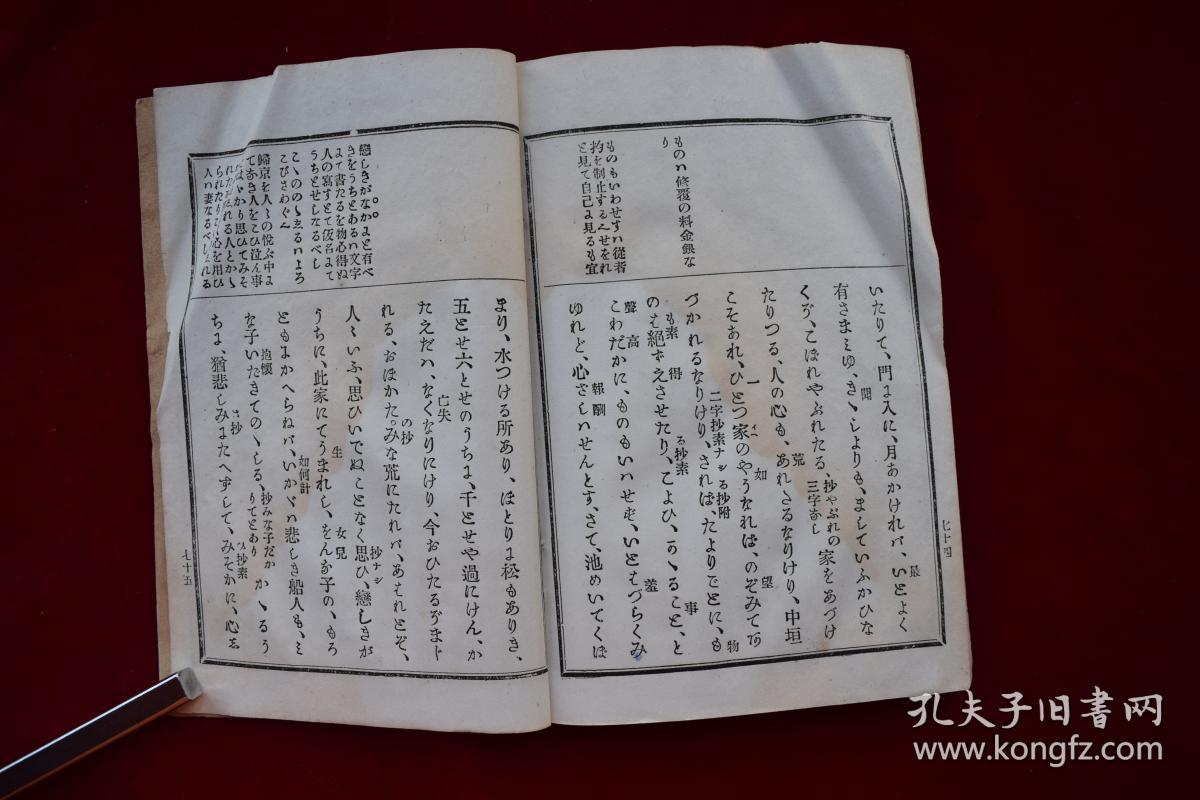 ものハ修覆の料金銀な
り
ものもいわせずハ從者
と見て自己よ見るも宜
いたりて、門よ入に、月あかけれバ、いとよく
最
有さまミゆ、きゝしよりも、ましていふかひな
聞
くぞ、こぼれやぶれたる、
抄やぶれの
三字なし
家をあづけ
たりつる、人の心も、あれたるなりけり、中垣
荒
こそあれ、ひとつ家のやうなれば、のぞみて
一
如
望
づかれるなりけり、されば、たよりごとに、も
二字抄素ナシ
る抄附
物
のも絶ずえさせたり、こよひ、かゝること、と
も素
得
る抄素
事
こわだかに、ものもいハせず、いとはづらくみ
聲高
羞
ゆれど、心ざしハせんとす、さて、池めいてくぼ
報酬
七十四
戀しきがなかよと有べ
きをうちとあるハ文字
よて書たるを物心得ぬ
人の寫すとて仮名よて
うちとせしなるべし
こゝののゝしるハよろ
こびさわぐ
歸京を人々の悦ぶ中よ
人ハ妻なるべし
まり、水つける所あり、ほとりよ松もありき、
五とせ六とせのうちよ、千とせや過にけん、か
たえだハ、なくなりにけり、今おひたるぞまじ
亡失
れる、おほかた。みな荒にたれバ、あはれとぞ、
の抄
人々いふ、思ひいでぬことなく思ひ、戀しきが
抄ナシ
うちに、此家にてうまれし、をんな子の、もろ
生
女兒
ともよかへらねバ、いかゞハ悲しき船人も、ミ
如何計
な子いだきてのゝしる、
抱懷
抄みな子だか
りてとあり
かゝるう
ちよ、猶悲しみよたへずして、みそかに、心し
さ抄
ハ抄素
七十五
孔夫子旧書网
www.kongfz.com